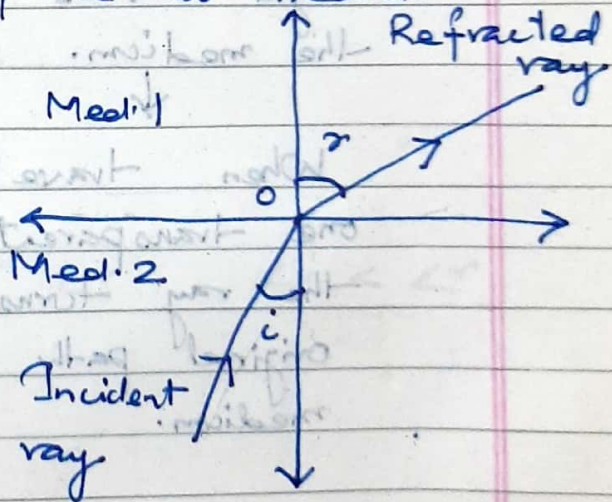 Refracted
ray
Med.1
r
O
Med.2
i
Incident
ray